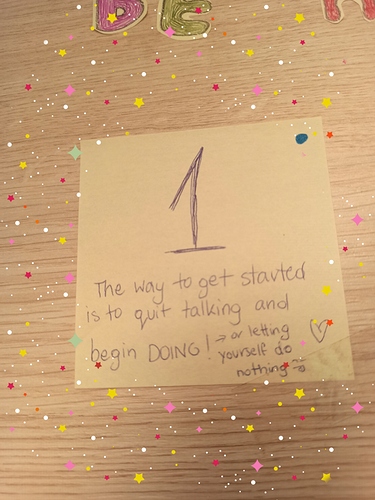 DE
1
The way to get started
is to quit talking and
begin DOING! → or letting
yourself do
nothing